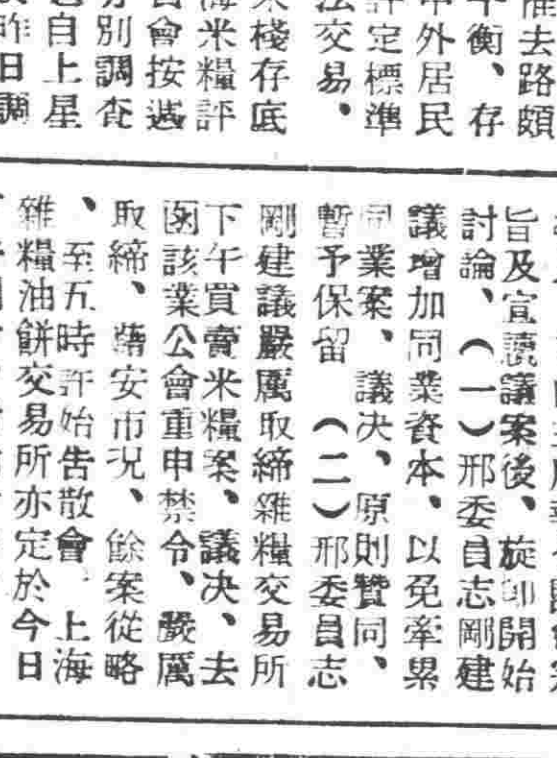 催去路頗
平衡、存
中外居民
評定標準
法交易、
棧存底
海米糧評
會按邁
別調查
自上星
昨日調
旨及宣讀議案後、旋即開始
討論、（一）邢委員志剛建
議增加同業資本、以免牽累
同業案、議决、原則贊同、
暫予保留（二）邢委員志
剛建議嚴厲取締雜糧交易所
下午買賣米糧案、議决、去
函該業公會重申禁令、嚴厲
取締、藉安市况、餘案從略
、至五時許始告散會、上海
雜糧油餅交易所亦定於今日